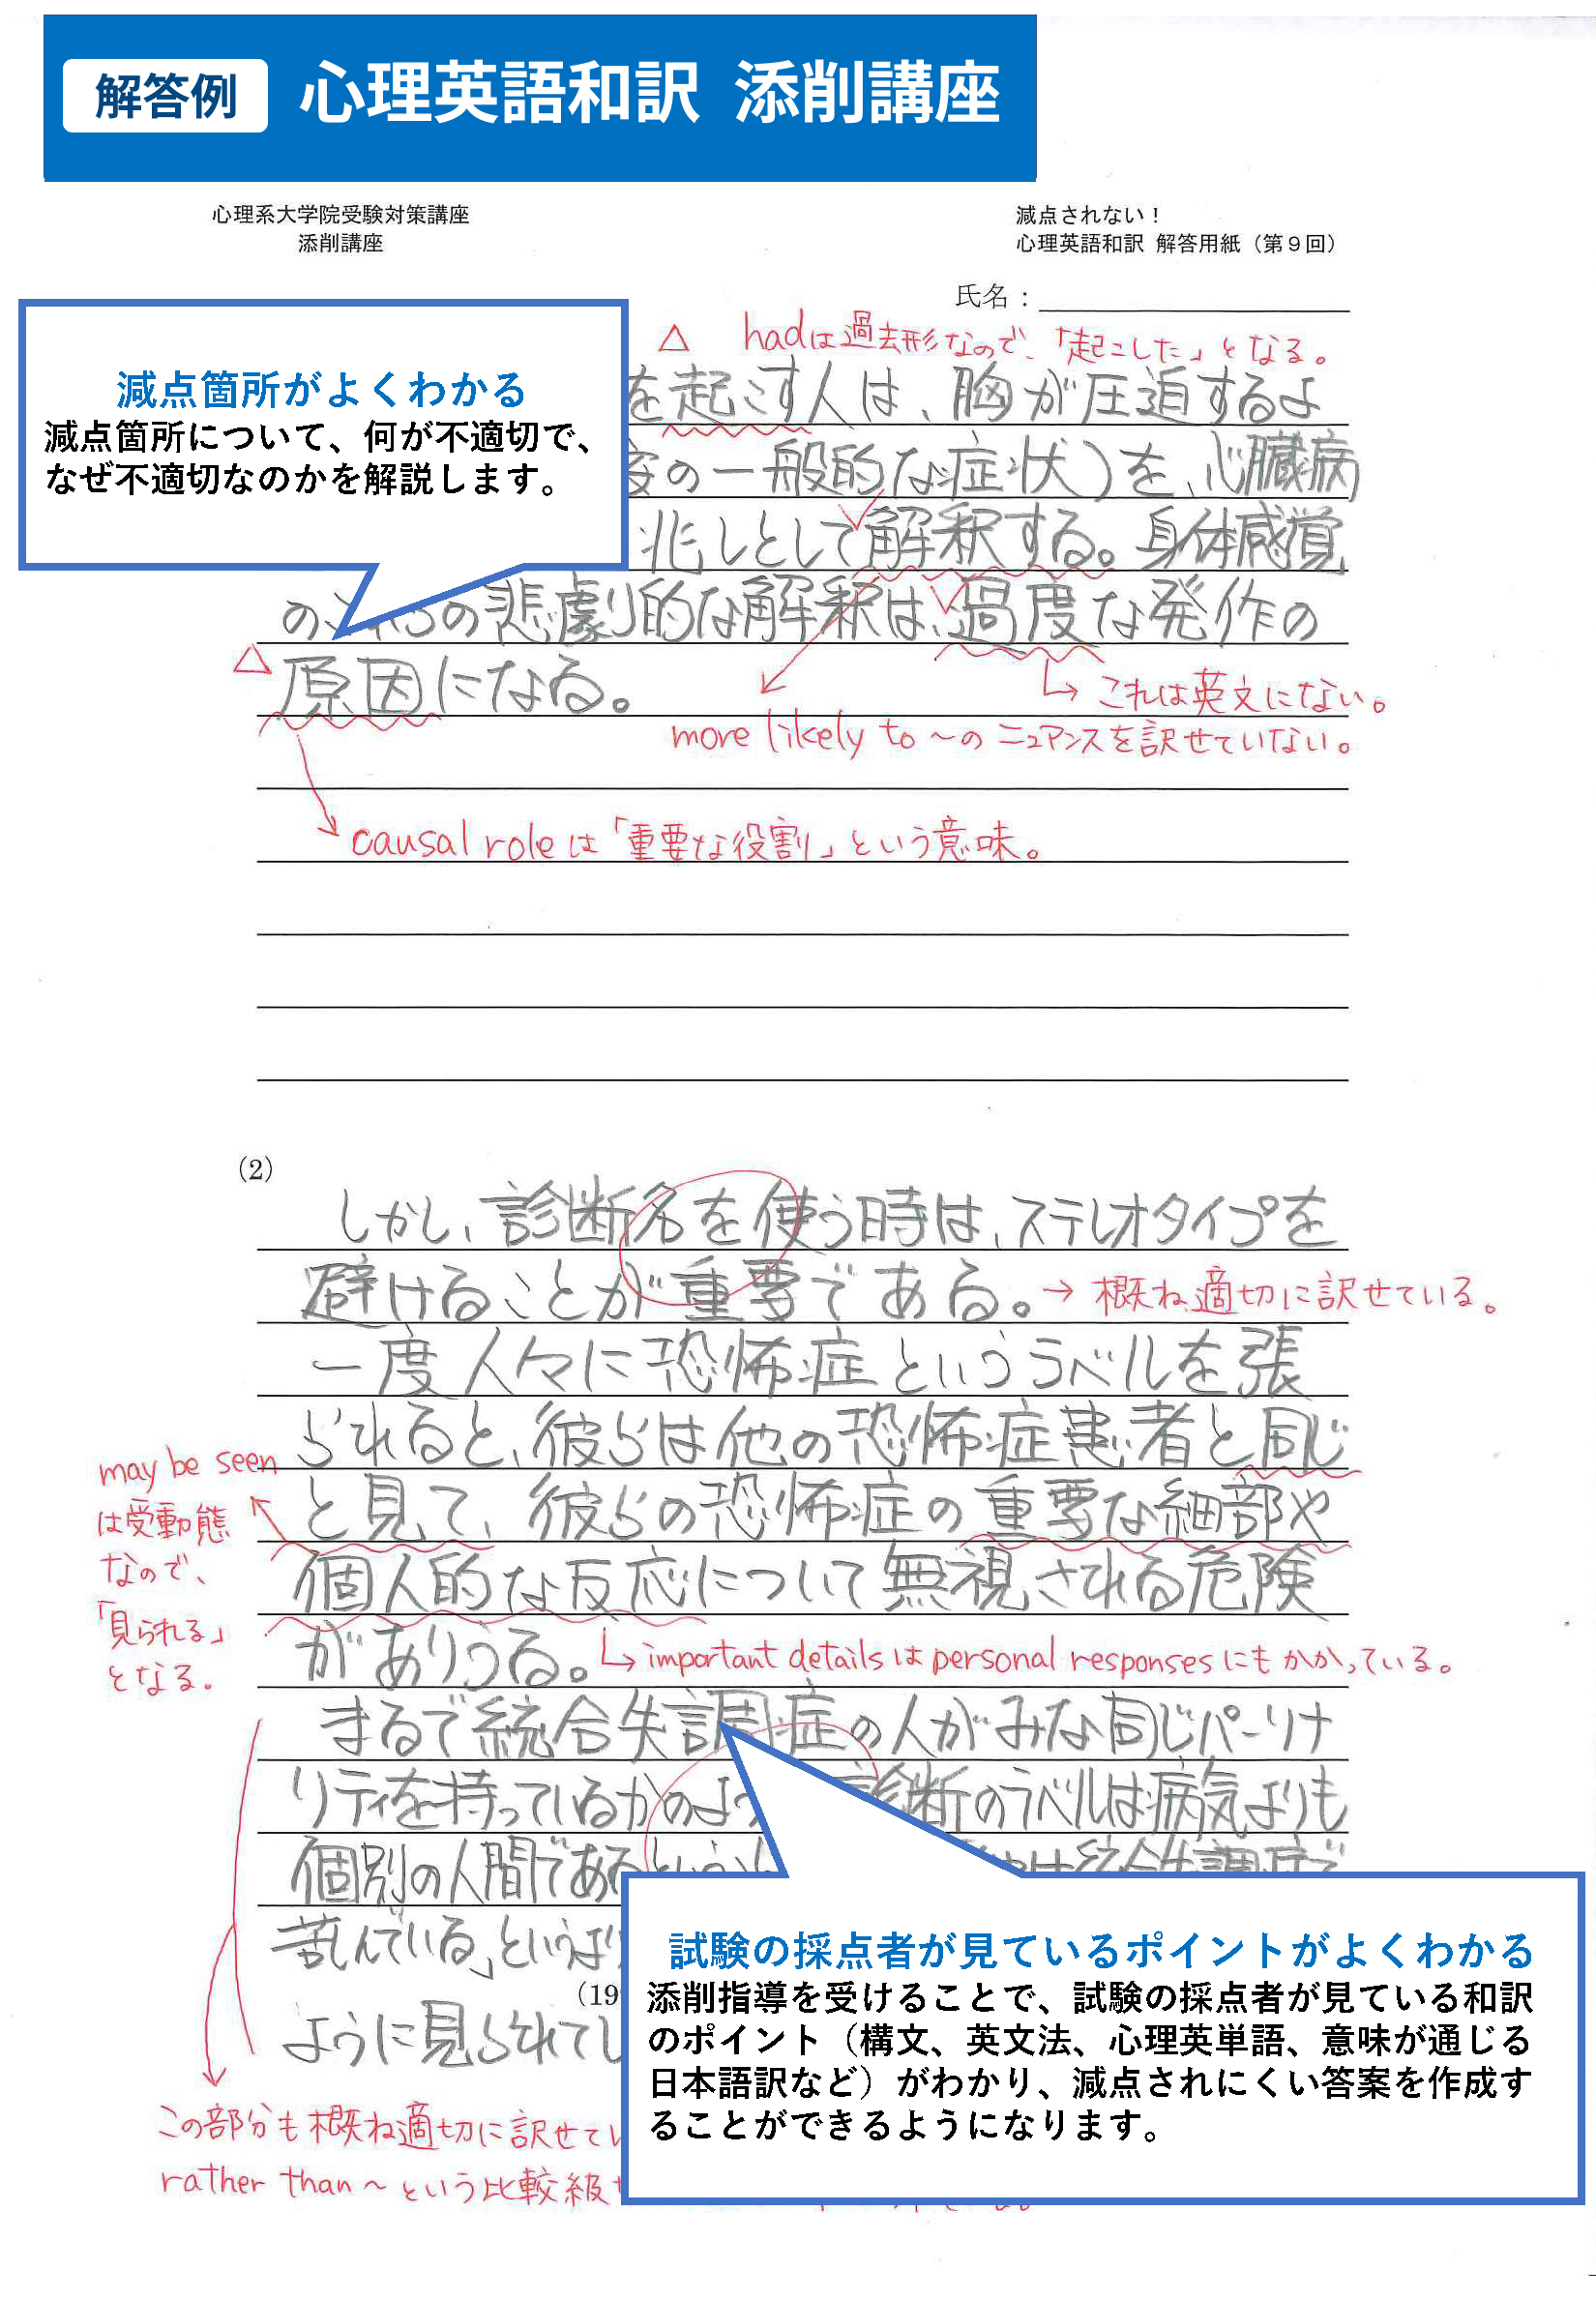 解答例 心理英語和訳 添削講座
心理系大学院受験対策講座
添削講座
減点されない！
心理英語和訳 解答用紙（第９回）
氏名：
減点箇所がよくわかる
減点箇所について、何が不適切で、
なぜ不適切なのかを解説します。
△ hadは過去形なので、「起こした」となる。
を起こす人は、胸が圧迫するよ
の一般的な症状）を、心臓病
兆しとして解釈する。身体感覚
の悲劇的な解釈は、過度な発作の
△ 原因になる。
↳ これは英文にない。
more likely to ～のニュアンスを訳せていない。
causal roleは「重要な役割」という意味。
(2)
しかし、診断名を使う時は、ステレオタイプを
避けることが重要である。→ 概ね適切に訳せている。
一度人々に恐怖症というラベルを張
られると、彼らは他の恐怖症患者と同じ
と見て、彼らの恐怖症の重要な細部や
個人的な反応について無視される危険
がありうる。
may be seen
は受動態
なので、
「見られる」
となる。
↳ important detailsはpersonal responsesにもかかっている。
まるで統合失調症の人がみな同じパーソナ
リティを持っているかのよう 診断のラベルは病気よりも
個別の人間である
苦しんでいる」というより
(19
ように見られてし
試験の採点者が見ているポイントがよくわかる
添削指導を受けることで、試験の採点者が見ている和訳
のポイント（構文、英文法、心理英単語、意味が通じる
日本語訳など）がわかり、減点されにくい答案を作成す
ることができるようになります。
この部分も概ね適切に訳せてい
rather than ～という比較級